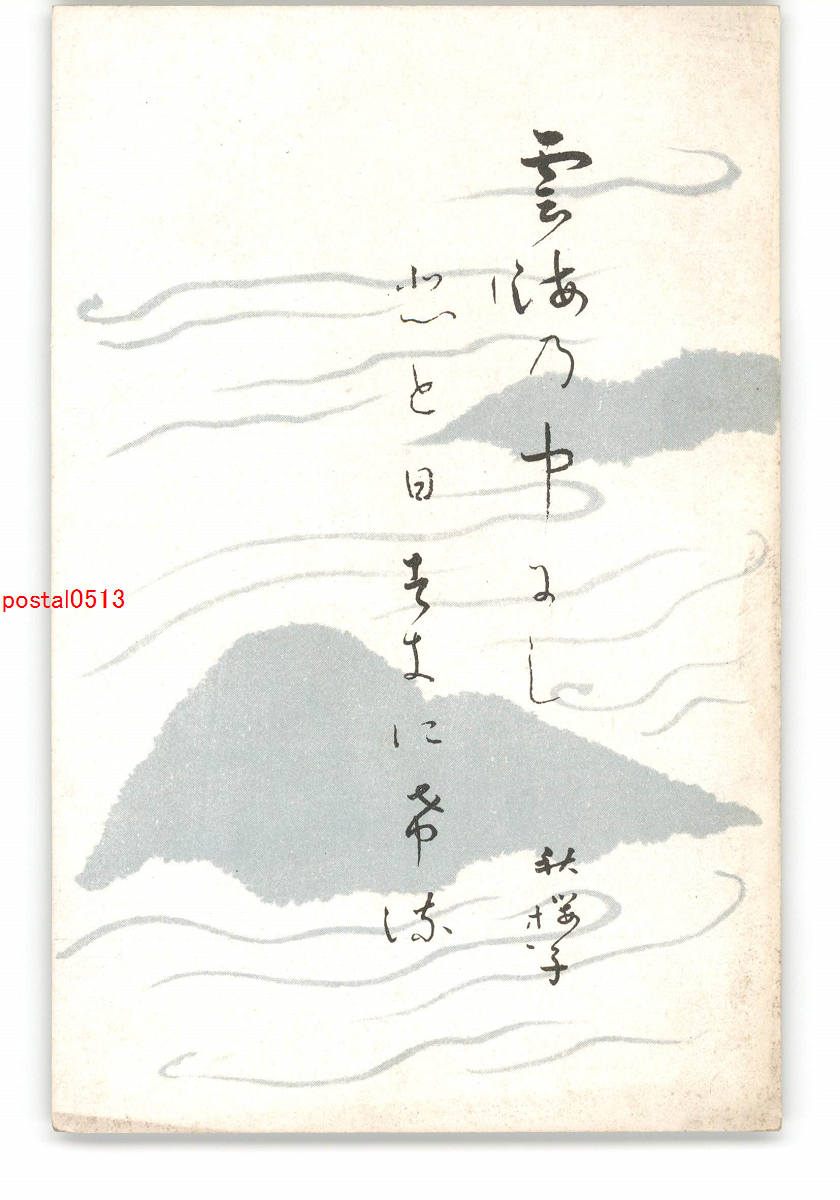 雲海乃中尓し
悲と日春支に希流
秋櫻子
postal0513